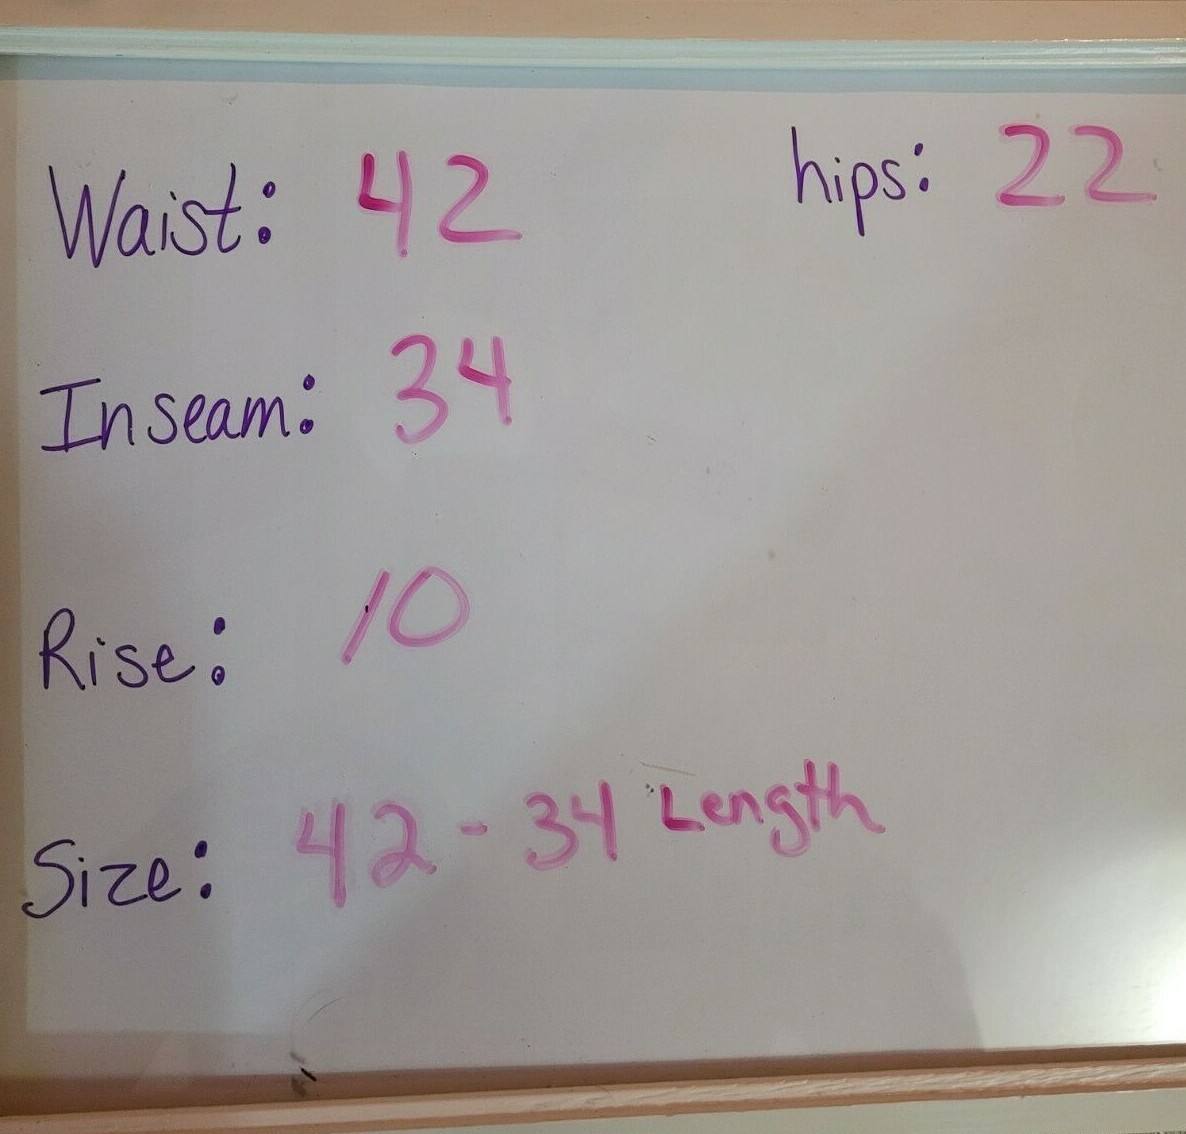 Waist: 42
hips: 22
Inseam: 34
Rise: 10
Size: 42 - 34 Length